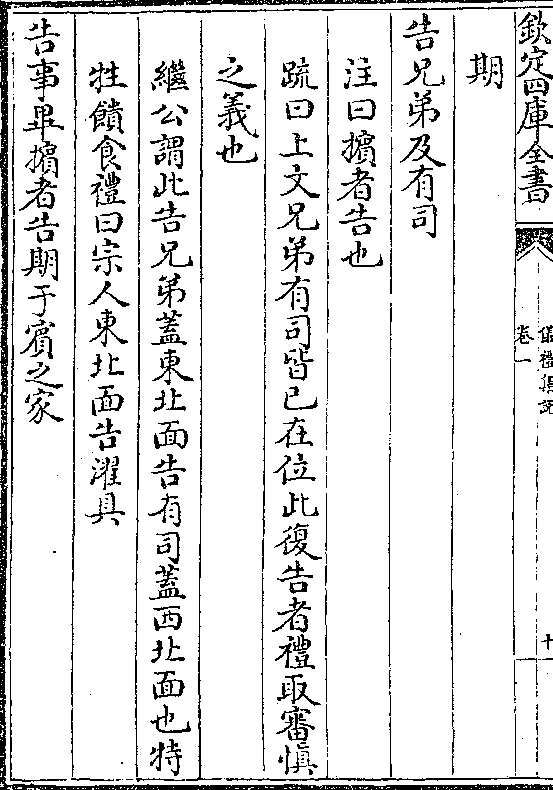 欽定四庫全書
儀禮集說
卷一
十
期
告兄弟及有司
注曰擯者告也
疏曰上文兄弟有司皆已在位此復告者禮取審慎
之義也
繼公謂此告兄弟蓋東北面告有司蓋西北面也特
牲饋食禮曰宗人東北面告濯具
告事畢擯者告期于賓之家